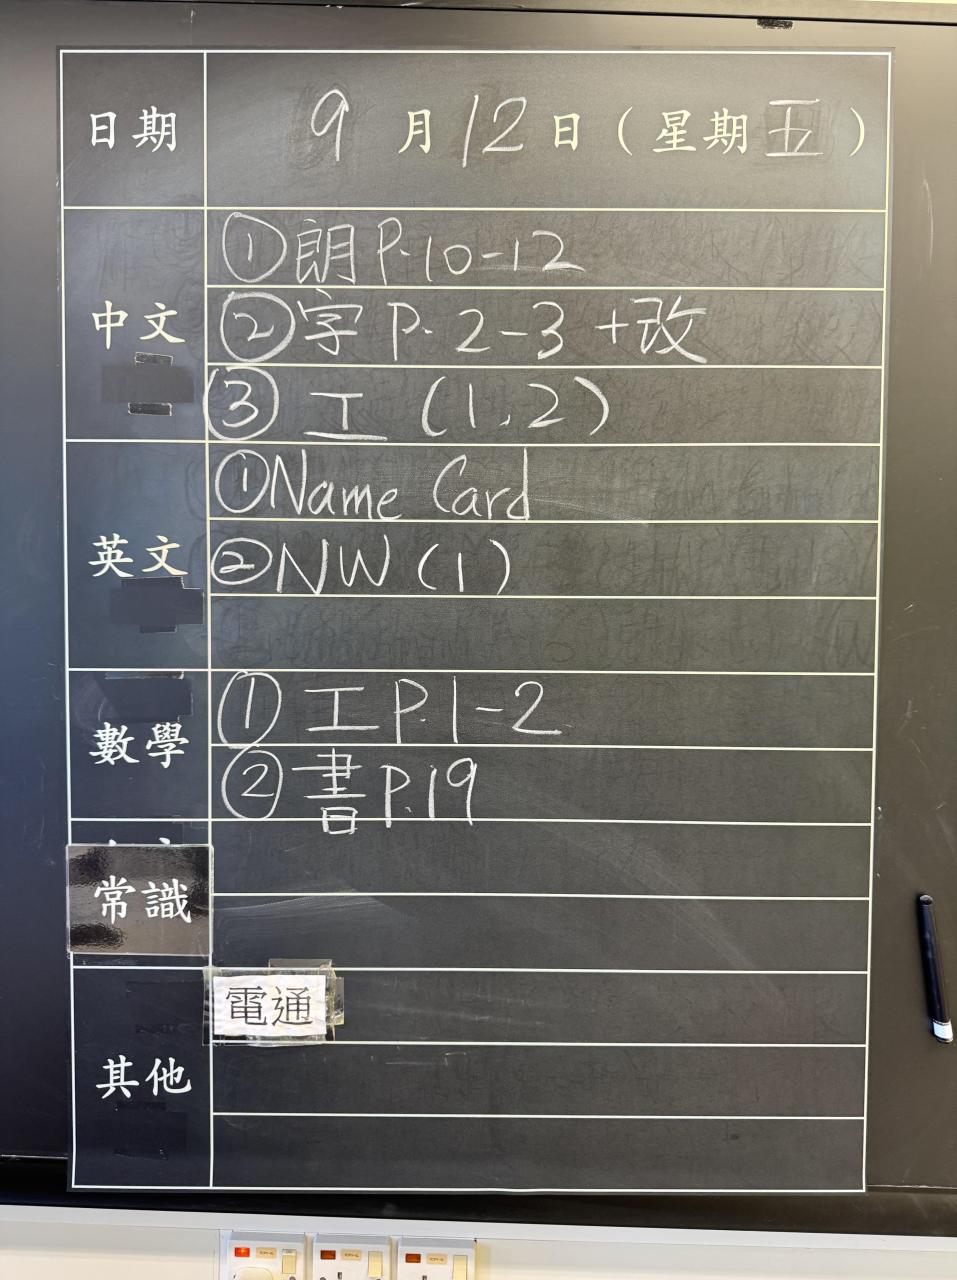 日期 9月12日(星期五)
中文
①朗 P.10-12
②字 P. 2-3 +改
③ 工 (1,2)
英文
①Name Card
②NW (1)
數學
① 工 P.1-2
② 書 P.19
常識
其他
電通